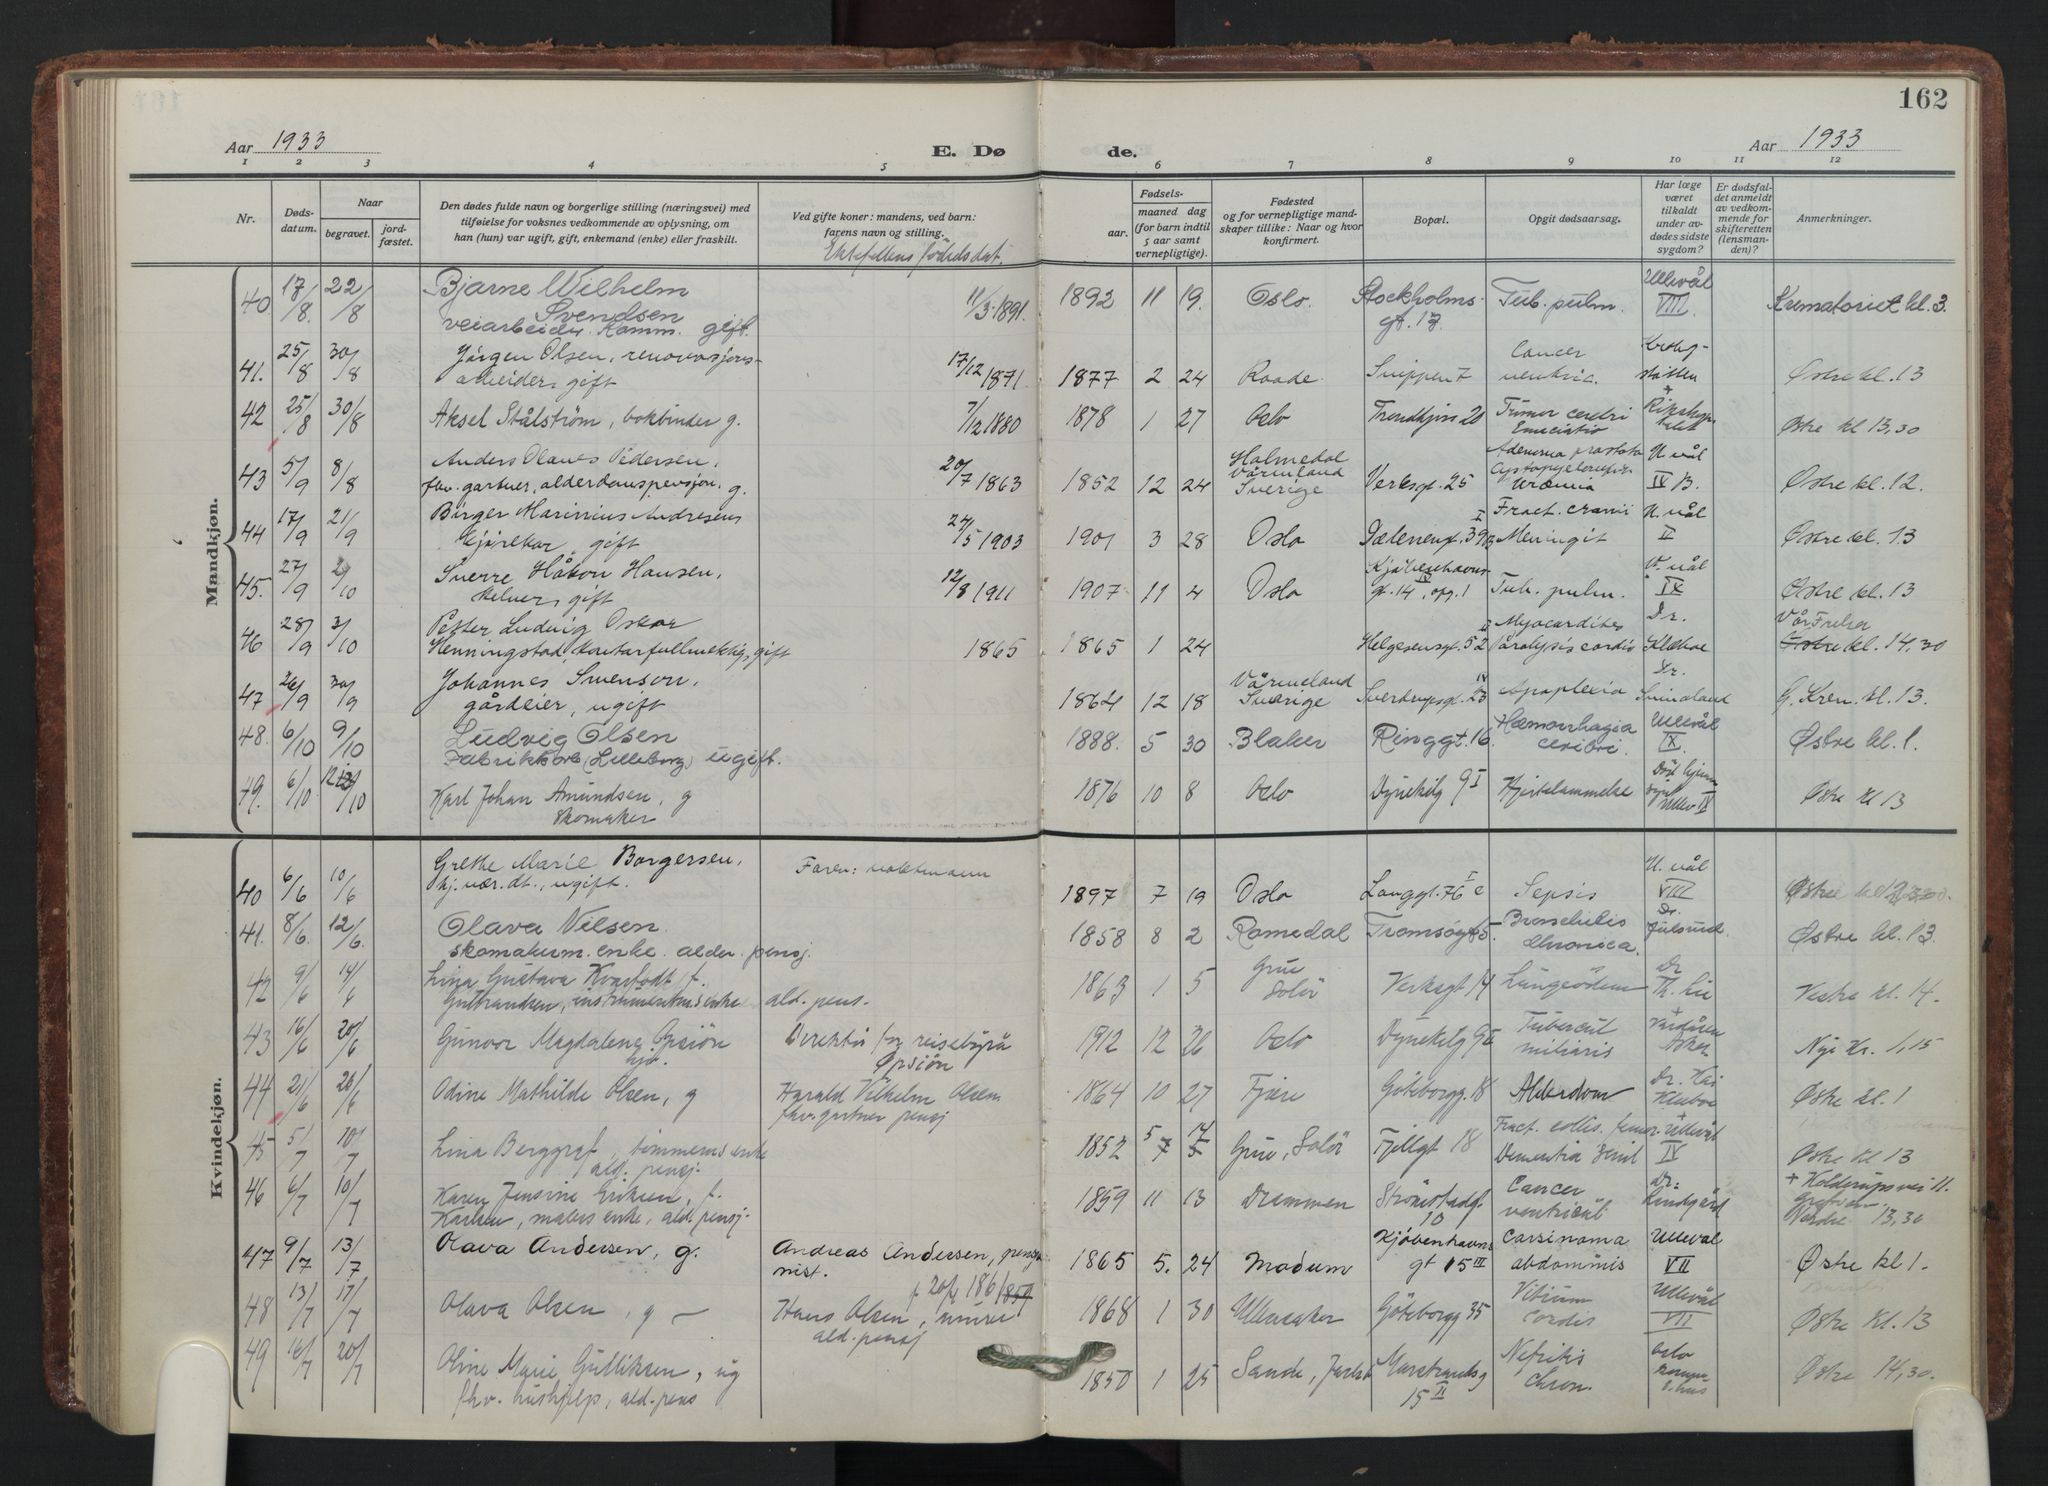 162
Aar 1933
E. Dø
de.
Aar 1933
1 2 3 4 5 6 7 8 9 10 11 12
Nr.
Døds-
datum.
Naar
begravet.
jord-
fæstet.
Den dødes fulde navn og borgerlige stilling (næringsvei) med
tilføielse for voksnes vedkommende av oplysning, om
han (hun) var ugift, gift, enkemand (enke) eller fraskilt.
Ved gifte koner: mandens, ved barn:
farens navn og stilling.
Ektefellens fødselsdat.
Fødsels-
aar.
maaned dag
(for barn indtil
5 aar samt
vernepligtige).
Fødested
og for vernepligtige mand-
skaper tillike: Naar og hvor
konfirmert.
Bopæl.
Opgit dødsaarsag.
Har læge
været
tilkaldt
under av-
dødes sidste
sygdom?
Er dødsfal-
det anmeldt
av vedkom-
mende for
skifteretten
(lensman-
den)?
Anmerkninger.
Mandkjøn.
40 17/8 22/8 Bjarne Wilhelm
Svendsen
veiarbeider. Komm. gift. 11/3-1891. 1892 11 19. Oslo. Stockholms-
gt. 17. Tub. pulm. Ullevål
VIII. Krematoriet kl. 3.
41. 25/8 30/8 Jørgen Olsen, renovasjons-
arbeider, gift 17/12 1871. 1877 2 24 Raade. Snippen 7 Cancer
Østre kl. 13
42 25/8 30/8 Aksel Stålström, bokbinder g. 7/12 1880 1878 1 27 Oslo Trondhjems 20 Tumor cerebri
Emaciatio Østre kl 13,30
43 5/9 8/8 Anders Olaves Pedersen,
fhv. gartner, alderdomspensjon. g. 20/7 1863 1852 12 24 Holmedal
Värmland
Sverige Verksgt. 25 Adenoma prostata
Uræmia U. vål
IV B. Østre kl. 12.
44 17/9 21/9 Birger Marinius Andresen
kjørekar, gift 24/5 1903 1901 3 28 Oslo Dælenengt. 39 Fract. cranii
Meningit U. vål
II Østre kl. 13
45. 27/9 2/10 Sverre Håkon Hansen,
kelner, gift 12/8 1911 1907 11 4 Oslo Kjøbenhavns-
gt. 14 IV, opg. 1 Tub. pulm. U. vål
IX Østre kl. 13
46 28/9 3/10 Petter Ludvig Oskar
Henningstad, kontorfullmektig, gift 1865 1865 1 24 Helgesensgt. 52 II Myocarditis
Paralysis cordis Dr.
Vår Frelser
Østre kl. 14,30
47 26/9 30/9 Johannes Svenson,
gårdeier, ugift 1864 12 18 Värmeland
Sverige Sverdrupsgt. 23 IV Apoplexia Dr.
Smaaland G. Krem. kl. 13.
48. 6/10 9/10 Ludvig Olsen
Fabrikkarb (Lilleborg) ugift. 1888. 5 30 Blaker Ringgt. 16. Hæmorrhagia
cerebri. Ullevål
IX. Østre kl. 1.
49. 6/10 12/10 Karl Johan Amundsen, g
Skomaker 1876 10 8 Oslo Dynekilg 9 I Hjertelammelse
Ullev IV Østre kl 13
Kvindekjøn.
40 6/6 10/6 Grethe Marie Borgersen,
hj. vær. dt., ugift. Faren: 1897 7 19 Oslo Langgt. 76 I c Sepsis U. vål
VIII Østre
41. 8/6. 12/6. Olava Nilsen.
skomakerm. enke. alder. pensj. 1858 8 2 Romedal Tromsøgt 5. Bronchitis
chronica. Dr.
Østre kl. 13.
42 9/6 14/6 Lina Gustava Kvastodt f.
Gulbrandsen, instrumentm.s enke ald. pens. 1863 1 5 Grue
Solör Verksgt 14 Lungeödem Dr
Th. Lie Vestre kl. 14.
43 16/6 20/6 Gunvor Magdalena Opsiön Direktör for reisebyrå
Opsiön 1912 12 26 Oslo Dynekilg 9 Tubercul
miliaris Nye Kr. 1,15
44 21/6 26/6 Odine Mathilde Olsen, g Harald Vilhelm Olsen
fhv. gartner pensj 1864 10 27 Fjære Göteborgg. 18 Alderdom Dr. Kai
Østre kl. 1
45 5/7 10/7 Lina Berggraf, tömmerm.s enke
ald. pensj. 1852 Grue, Solör Fjellgt 18 Fract. collis. femor.
Dementia senil Ullevål
IV Østre kl 13
46 6/7 10/7 Karen Jensine Eriksen, f.
Karlsen, malers enke, ald. pensj. 1859 11 13 Drammen Strömstadg.
10 Cancer
ventricul Dr:
Lindgård + Kolderupsvei 11.
Grefsen
Nordre 13,30
47 9/7 13/7 Olava Andersen, g. Andreas Andersen, pensjo-
nist. 1865 5. 24 Modum Kjøbenhavns
gt 15 III Carsinoma
abdominis Ullevål
VII Østre kl 1.
48 13/7 17/7 Olava Olsen, g — f 20/ 1861
Hans Olsen, murer
ald. pensj 1868 1 30 Ullensaker Göteborgg 35 Vitium
Cordis Ullevål
VII Østre kl. 13
49 16/7 20/7 Oline Marie Gulliksen, ug
fhv. hushjelp, ald. pens 1850 1 25 Sande, Marstrandsg
15 II Nefritis
Chron. Oslo
Østre 14,30.